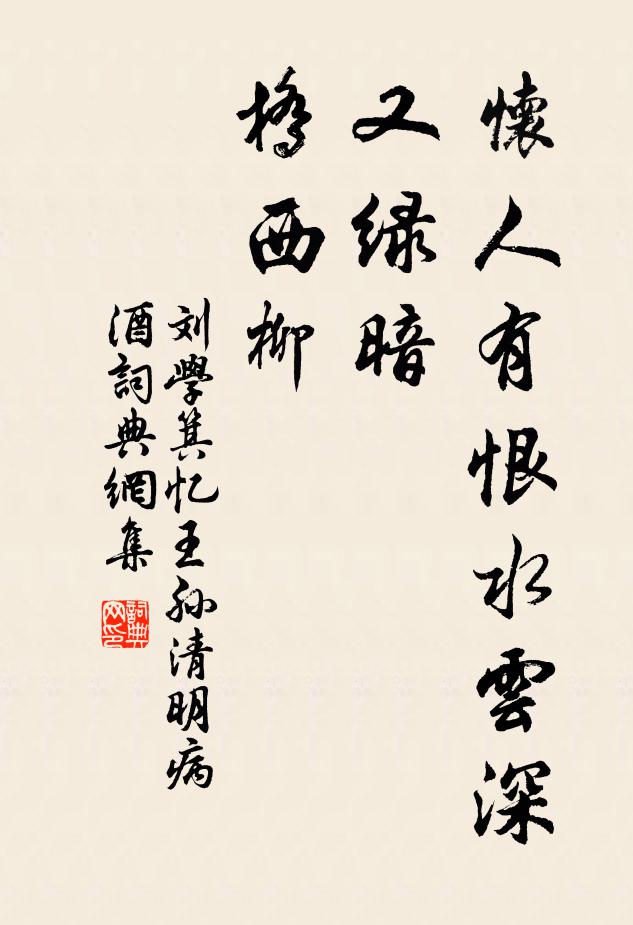 懷人有恨水雲深
又绿暗
橋西柳
刘學箕忆王孙清明病
酒詞典網集
詞典
网印